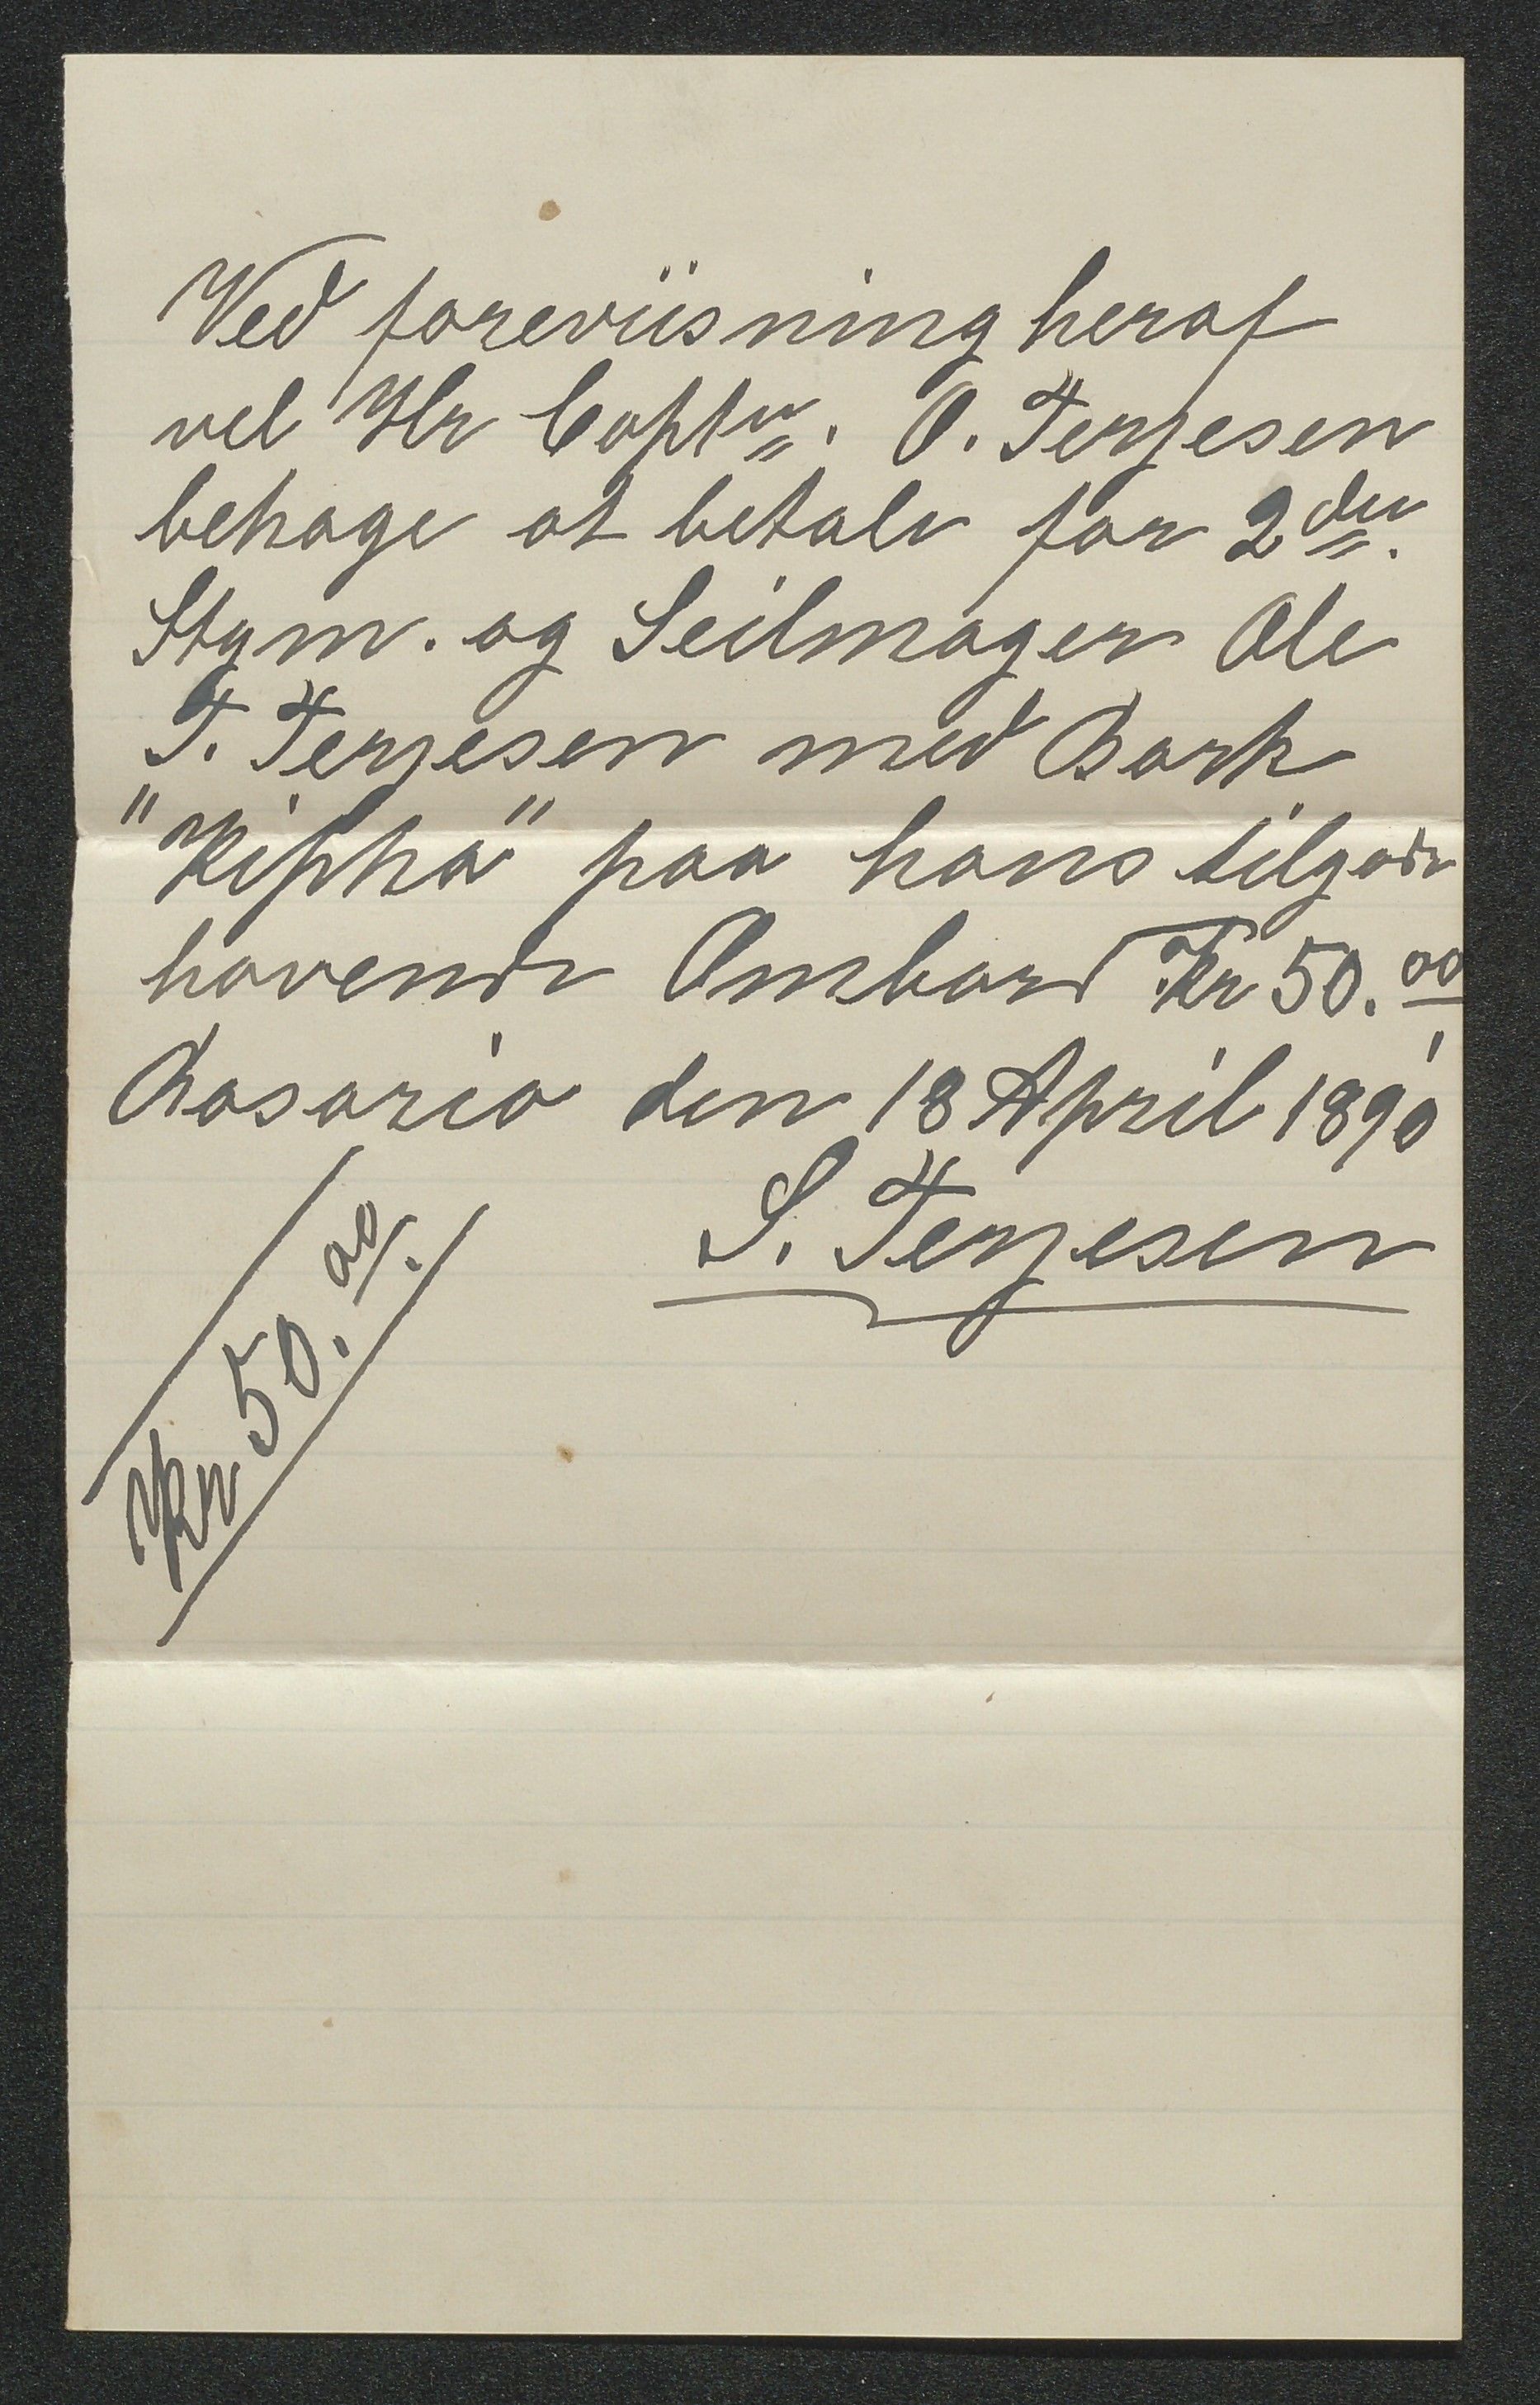 Ved foreviisning heraf
vel Hr Captn. O. Terjesen
behage at betale for 2den.
Stym. og Seilmager Ole
T. Terjesen med Bark
"Kipha" paa hans tilgode
havende Ombord Kr 50.00
Rosario den 18 April 1890
S. Terjesen
Kr 50.00/.